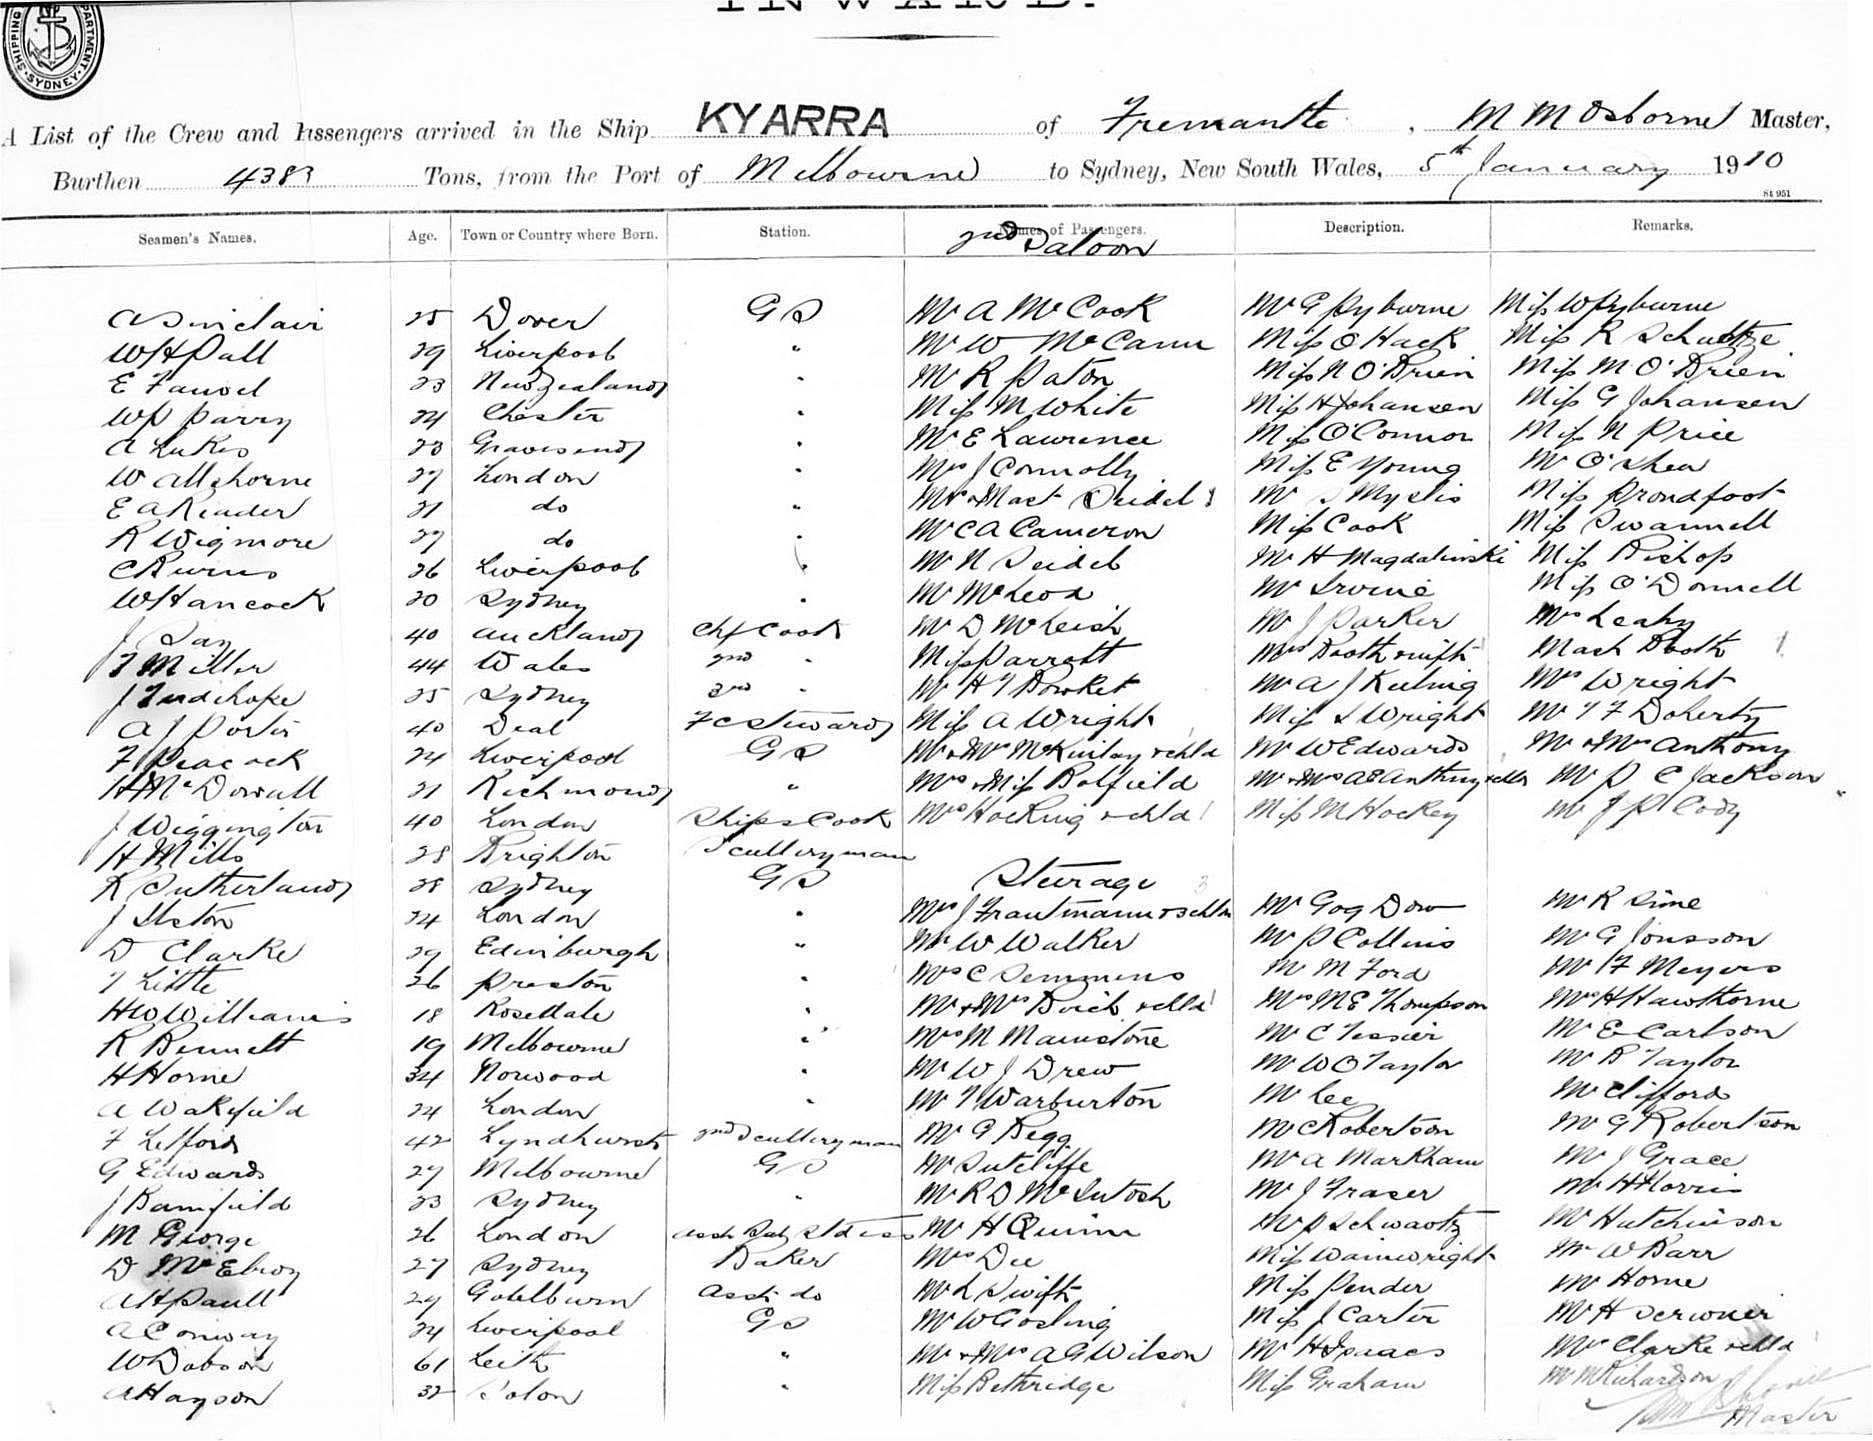 INWARD.
SHIPPING DEPARTMENT. SYDNEY.
A List of the Crew and Passengers arrived in the Ship KYARRA of Fremantle, M M Osborne Master,
Burthen 4383 Tons, from the Port of Melbourne to Sydney, New South Wales, 5th January 1910
St 951
Seamen's Names. Age. Town or Country where Born. Station. Names of Passengers. Description. Remarks.
2nd Saloon
A Sinclair 25 Dover G S Mr A McCook Mr G Pyburne Miss W Pyburne
W H Pall 29 Liverpool " Mr W McCann Miss O Hack Miss R Schultze
E 23 New Zealand " Mr R Paton Miss N O'Brien Miss M O'Brien
W P Parry 24 Chester " Miss M White Miss H Johansen Miss G Johansen
A Lukes 23 Gravesend " Mr E Lawrence Miss O'Connor Miss N Price
W Allchorne 27 London " Mrs J Connolly Miss E Young Mr O'Shea
E A Reader 21 do " Mrs & Mast Seidel 1 Mr S Myslis Miss Proudfoot
R Wigmore 27 do " Mr C A Cameron Miss Cook Miss Swannell
C Burns 26 Liverpool " Mr N Seidel Mr H Magdalinski Miss Bishop
W Hancock 20 Sydney " Mr McLeod Mr Irvine Miss O'Donnell
J Day 40 Auckland Chf Cook Mr D McLeish Mr J Parker Mrs Leahy
T Miller 44 Wales 2nd " Miss Parrott Mrs Booth & inft Mast Booth 1
J Tudehope 25 Sydney 3rd " Mr H T Bowket Mr A J Keling Mrs Wright
A J Porter 40 Deal F C Steward Miss A Wright Miss L Wright Mr T F Doherty
F Peacock 24 Liverpool G S Mr & Mrs McKinlay & chld Mr W Edwards Mr & Mrs Anthony
H McDowall 21 Richmond " Mrs & Miss Botfield Mr & Mrs A E Anthony & chldr Mr P C Jackson
J Wiggington 40 London Ships Cook Mrs Hocking & chld 1 Miss M Hockey Mr J P Cody
H Mills 28 Brighton Sculleryman
R Sutherland 28 Sydney G S Steerage
J Ilston 24 London " Mrs J Trautmann & 3 chldn Mr Gog Dow Mr R Sime
D Clarke 29 Edinburgh " Mr W Walker Mr P Collins Mr G Jonsson
T Little 26 Preston " Mrs C Semmens Mr M Ford Mr F Meyers
H W Williams 18 Rosedale " Mr & Mrs Buick & chld 1 Mrs M E Thompson Mrs H Hawthorne
R Bennett 19 Melbourne " Mrs M Mainstone Mr C Tessier Mr E Carlson
H Horne 34 Norwood " Mr W J Drew Mr W O Taylor Mr B Taylor
A Wakefield 24 London " Mr T Warburton Mr Lee Mr Clifford
F Lefford 42 Lyndhurst 2nd Sculleryman Mr G Begg Mr C Robertson Mr G Robertson
G Edwards 27 Melbourne G S Mr Sutcliffe Mr A Markham Mr J Grace
J Bamfield 23 Sydney " Mr R D McIntosh Mr J Fraser Mr H Norris
M George 26 London Mr H Quinn Mr P Schwartz Mr Hutchinson
D McElroy 27 Sydney Baker Mrs Dee Miss Wainwright Mr W Barr
A H Paull 29 Goulburn Asst do Mr L Swift Miss Pender Mr Horne
A Conway 24 Liverpool G S Mr W Gosling Miss J Carter Mr H
W Dobson 61 Leith " Mr & Mrs A G Wilson Mr H Isaacs Mr Clarke & chld
A Hayson 32 Colon " Miss Bethridge Miss Graham Mr M Richardson
Master